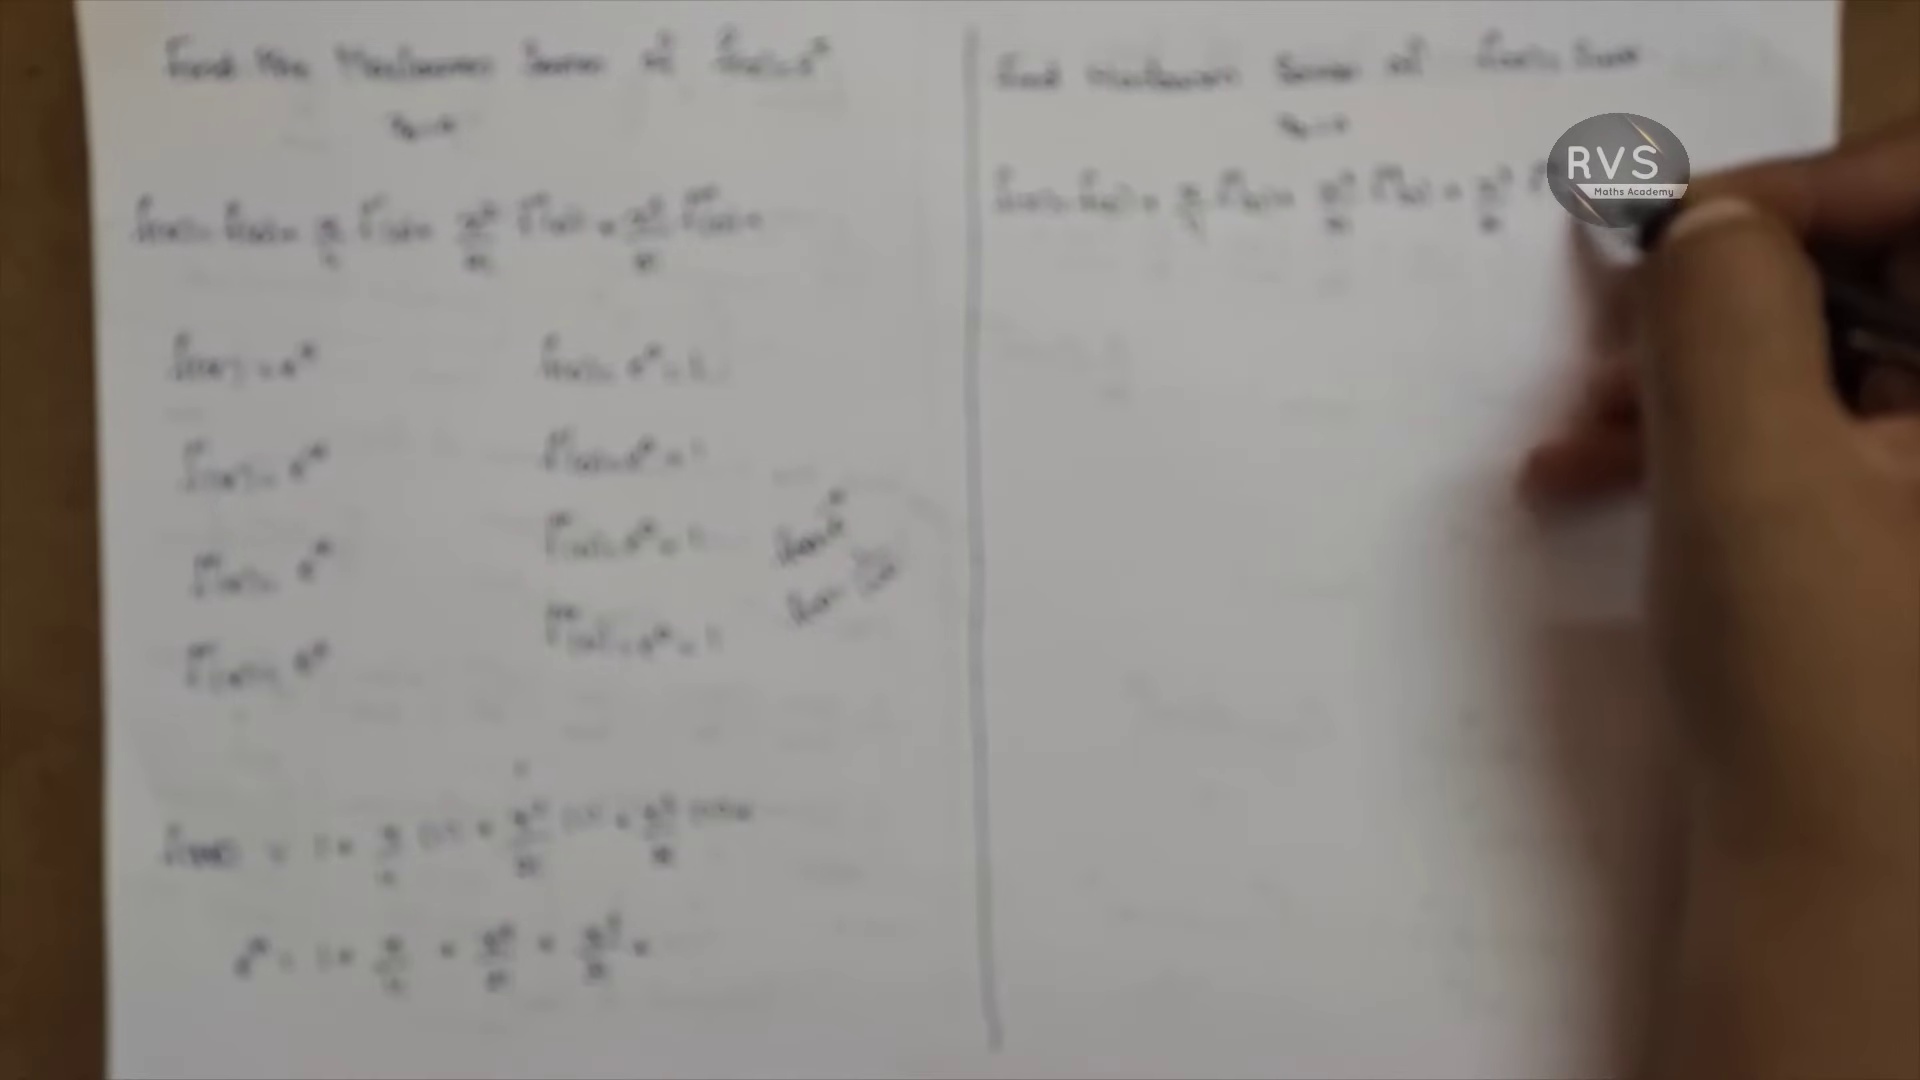 Find the Maclaurin Series of f(x) = e^x
x₀ = 0
f(x) = f(0) + x/1 f'(0) + x²/2! f''(0) + x³/3! f'''(0) +
f(x) = e^x f(0) = e^0 = 1
f'(x) = e^x f'(0) = e^0 = 1
f''(x) = e^x f''(0) = e^0 = 1
f'''(x) = e^x f'''(0) = e^0 = 1
f(x) = 1 + x/1 (1) + x²/2! (1) + x³/3! (1) +
e^x = 1 + x/1 + x²/2! + x³/3! +
Find Maclaurin Series of f(x) =
x₀ = 0
f(x) = f(0) + x/1 f'(0) + x²/2! f''(0) + x³/3!
RVS
Maths Academy